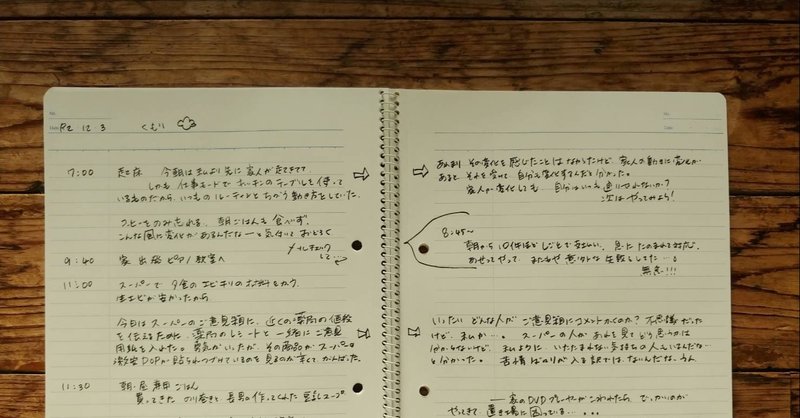 No.
Date R2 12 3 くもり
7:00 起床 今朝は私より先に家人が起きてて
しかも 仕事モードでキッチンのテーブルを使って
いるものだから、いつものルーティンとちがう動き方をしていた。
コーヒーをのみ忘れる、朝ごはんも食べず。
こんな風に変化があるんだなーと気付いておどろく
メールチェック
して…
9:40 家出発 ピアノ教室へ
11:00 スーパーで 夕食のエビチリの材料をカウ。
生エビが安かったから
今日はスーパーのご意見箱に、近くの薬局の値段
を伝えるために 薬局のレシートと一緒にご意見
用紙を入れた。勇気がいったが、その商品がスーパーで
激安POPが貼られつづけているのを見るのが辛くて がんばった。
11:30 朝・昼兼ごはん
買ってきた のり巻きと 長男の作ってくれた 豆乳スープ
No.
Date
あんまり その変化を感じたことはなかったけど、家人の動きに変化が
あると それを受けて 自分も変化するんだと分かった。
家人が変化しても、自分はいつも通りにやれないか?
次は やってみよう!
8:45〜
朝から 10件ほどしごとで 急にたのまれてたが、
あせってやって、またもや 意外な 失敗してた…。
無念!!!
いったい どんな人が ご意見箱にコメントかくのか? 不思議だった
けど、私が…。スーパーの人が あれを見て どう思うかは
分からないけど、私のように いたたまれない気持ちの人もいるんだな
と分かった。 苦情ばかりが入る訳では、ないんだな、うん
家のDVDプレーヤーがこわれたら でっかいのが
やってきて 置き場に困っている…。。。